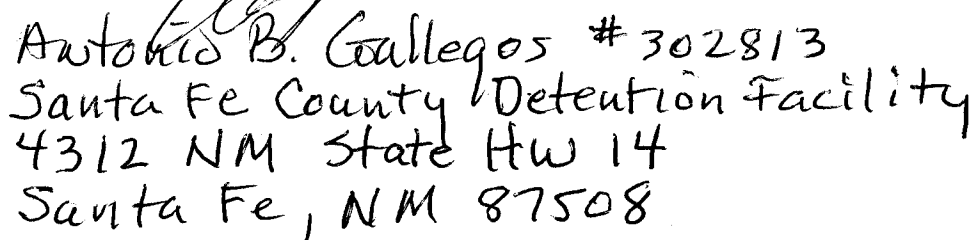 Antonio B. Gallegos #302813
Santa Fe County Detention Facility
4312 NM State HW 14
Santa Fe, NM 87508